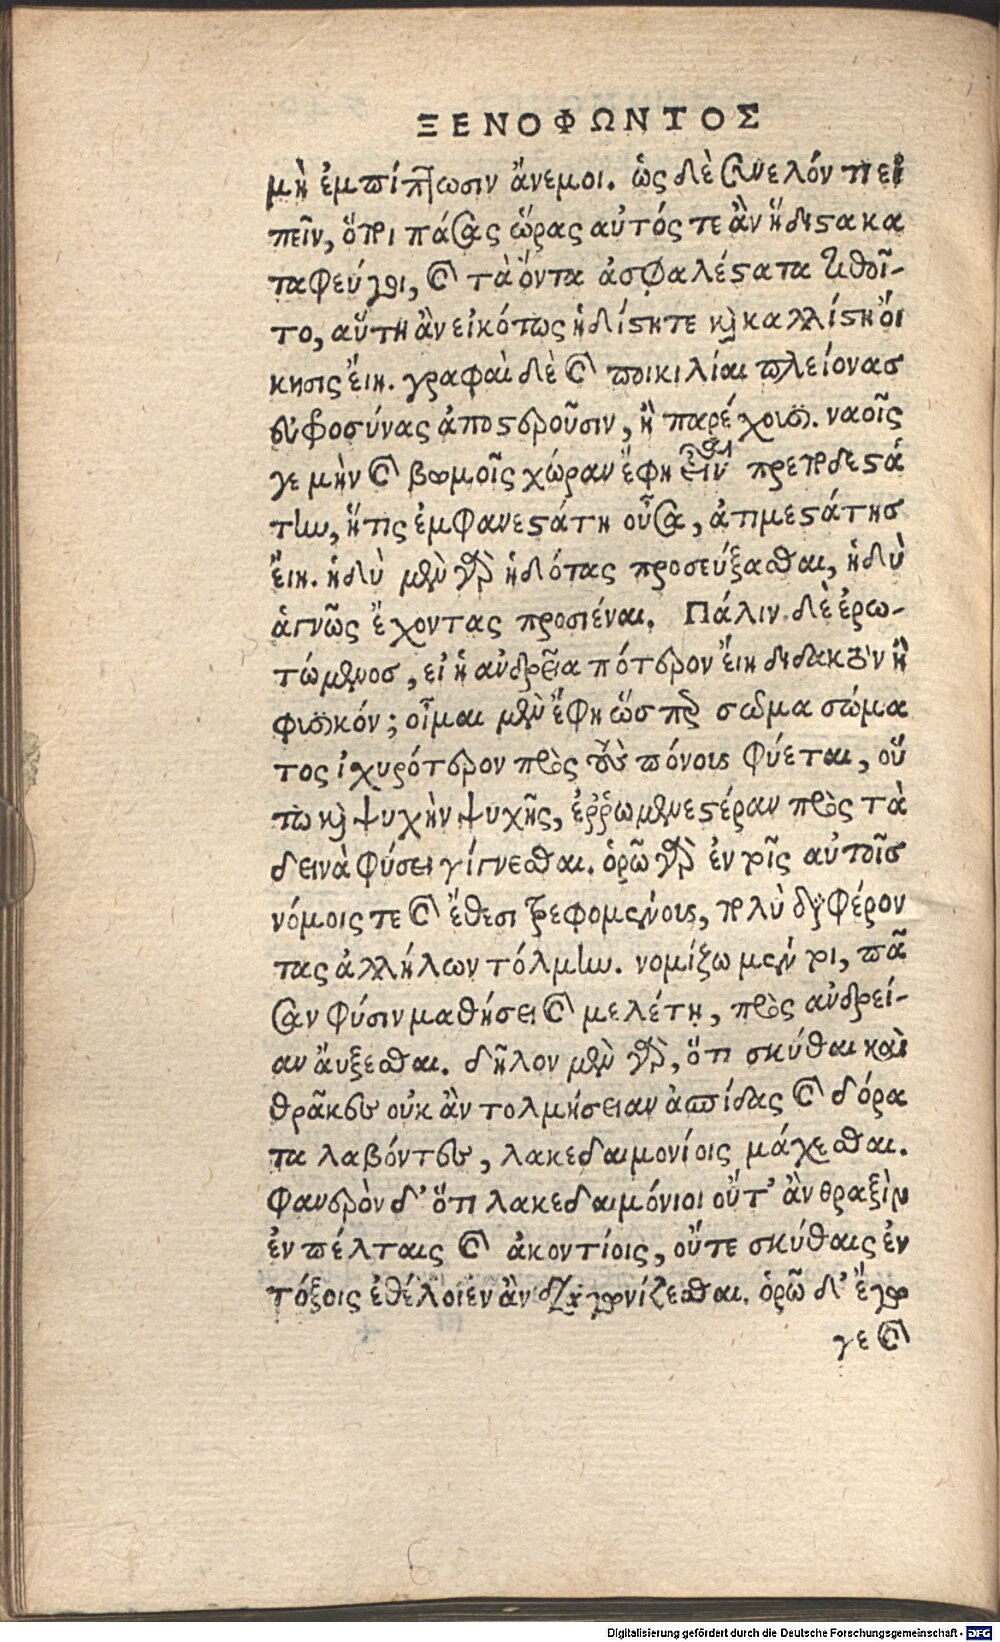 ΞΕΝΟΦΩΝΤΟΣ
μὴ ἐμπίπτωσιν ἄνεμοι. ὡς δὲ συνελόντι εἰ
πεῖν, ὅποι πάσας ὥρας αὐτός τε ἂν ἥδιστα κα
ταφεύγοι, καὶ τὰ ὄντα ἀσφαλέστατα τιθοῖ-
το, αὕτη ἂν εἰκότως ἡδίστη τε καὶ καλλίστη ὄι
κησις ἔιη. γραφαὶ δὲ καὶ ποικιλίαι πλείονας
εὐφροσύνας ἀποστεροῦσιν, ἢ παρέχουσι. ναοῖς
γε μὴν καὶ βωμοῖς χώραν ἔφη εἶναι πρεπωδεστά
την, ἥτις ἐμφανεστάτη οὖσα, ἀστιβεστάτης
ἔιη. ἡδὺ μὲν γὰρ ἰδόντας προσεύξασθαι, ἡδὺ
ἁγνῶς ἔχοντας προσιέναι. Πάλιν δὲ ἐρω-
τώμενος, εἰ ἡ ἀνδρεία πότερον ἔιη διδακτὸν ἢ
φυσικόν; οἶμαι μὲν ἔφη ὥσπερ σῶμα σώμα
τος ἰχυρότερον πρὸς τοὺς πόνους φύεται, οὕ
τω καὶ ψυχὴν ψυχῆς, ἐρῥωμενεστέραν πρὸς τὰ
δεινὰ φύσει γίγνεσθαι. ὁρῶ γὰρ ἐν τοῖς αὐτοῖς
νόμοις τε καὶ ἔθεσι τρεφομένους, πολὺ διαφέρον
τας ἀλλήλων τόλμῃ. νομίζω μέντοι, πᾶ
σαν φύσιν μαθήσει καὶ μελέτῃ, πρὸς ἀνδρεί-
αν ἄυξεσθαι. δῆλον μὲν γὰρ, ὅτι σκύθαι καὶ
θρᾶκες οὐκ ἂν τολμήσειαν ἀσπίδας καὶ δόρα
τα λαβόντες, λακεδαιμονίοις μάχεσθαι.
φανερὸν δ' ὅτι λακεδαιμόνιοι οὔτ' ἂν θραξὶν
ἐν πέλταις καὶ ἀκοντίοις, οὔτε σκύθαις ἐν
τόξοις ἐθέλοιεν ἂν διαγωνίζεσθαι. ὁρῶ δ' ἔγω
γε καὶ
Digitalisierung gefördert durch die Deutsche Forschungsgemeinschaft - DFG